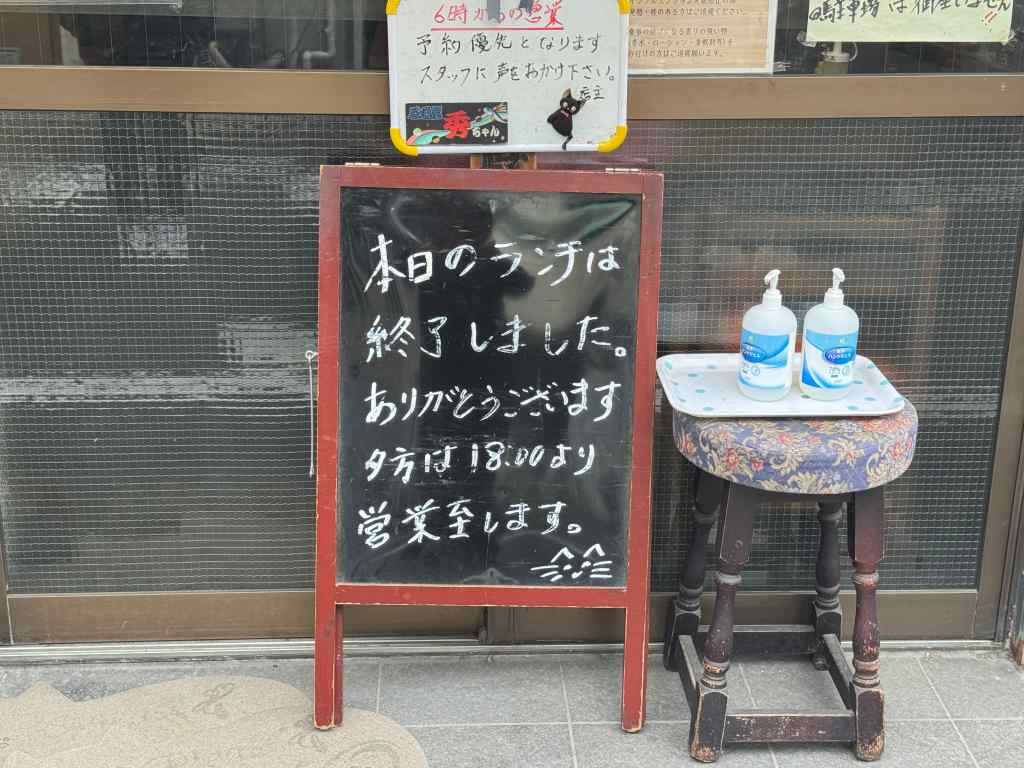 6時からの営業
予約優先となります
スタッフに声をおかけ下さい。
店主
秀ちゃん
駐車場は御座いません!!
本日のランチは
終了しました。
ありがとうございます
夕方は18:00より
営業至します。
ハンドジェル
ハンドジェル